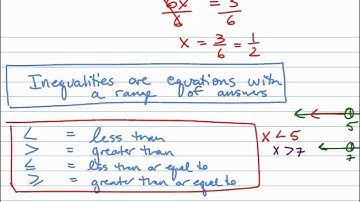 6x/6 = 3/6
x = 3/6 = 1/2
Inequalities are equations with
a range of answers
< = less than
> = greater than
≤ = less than or equal to
≥ = greater than or equal to
x < 5
5
x > 7
7